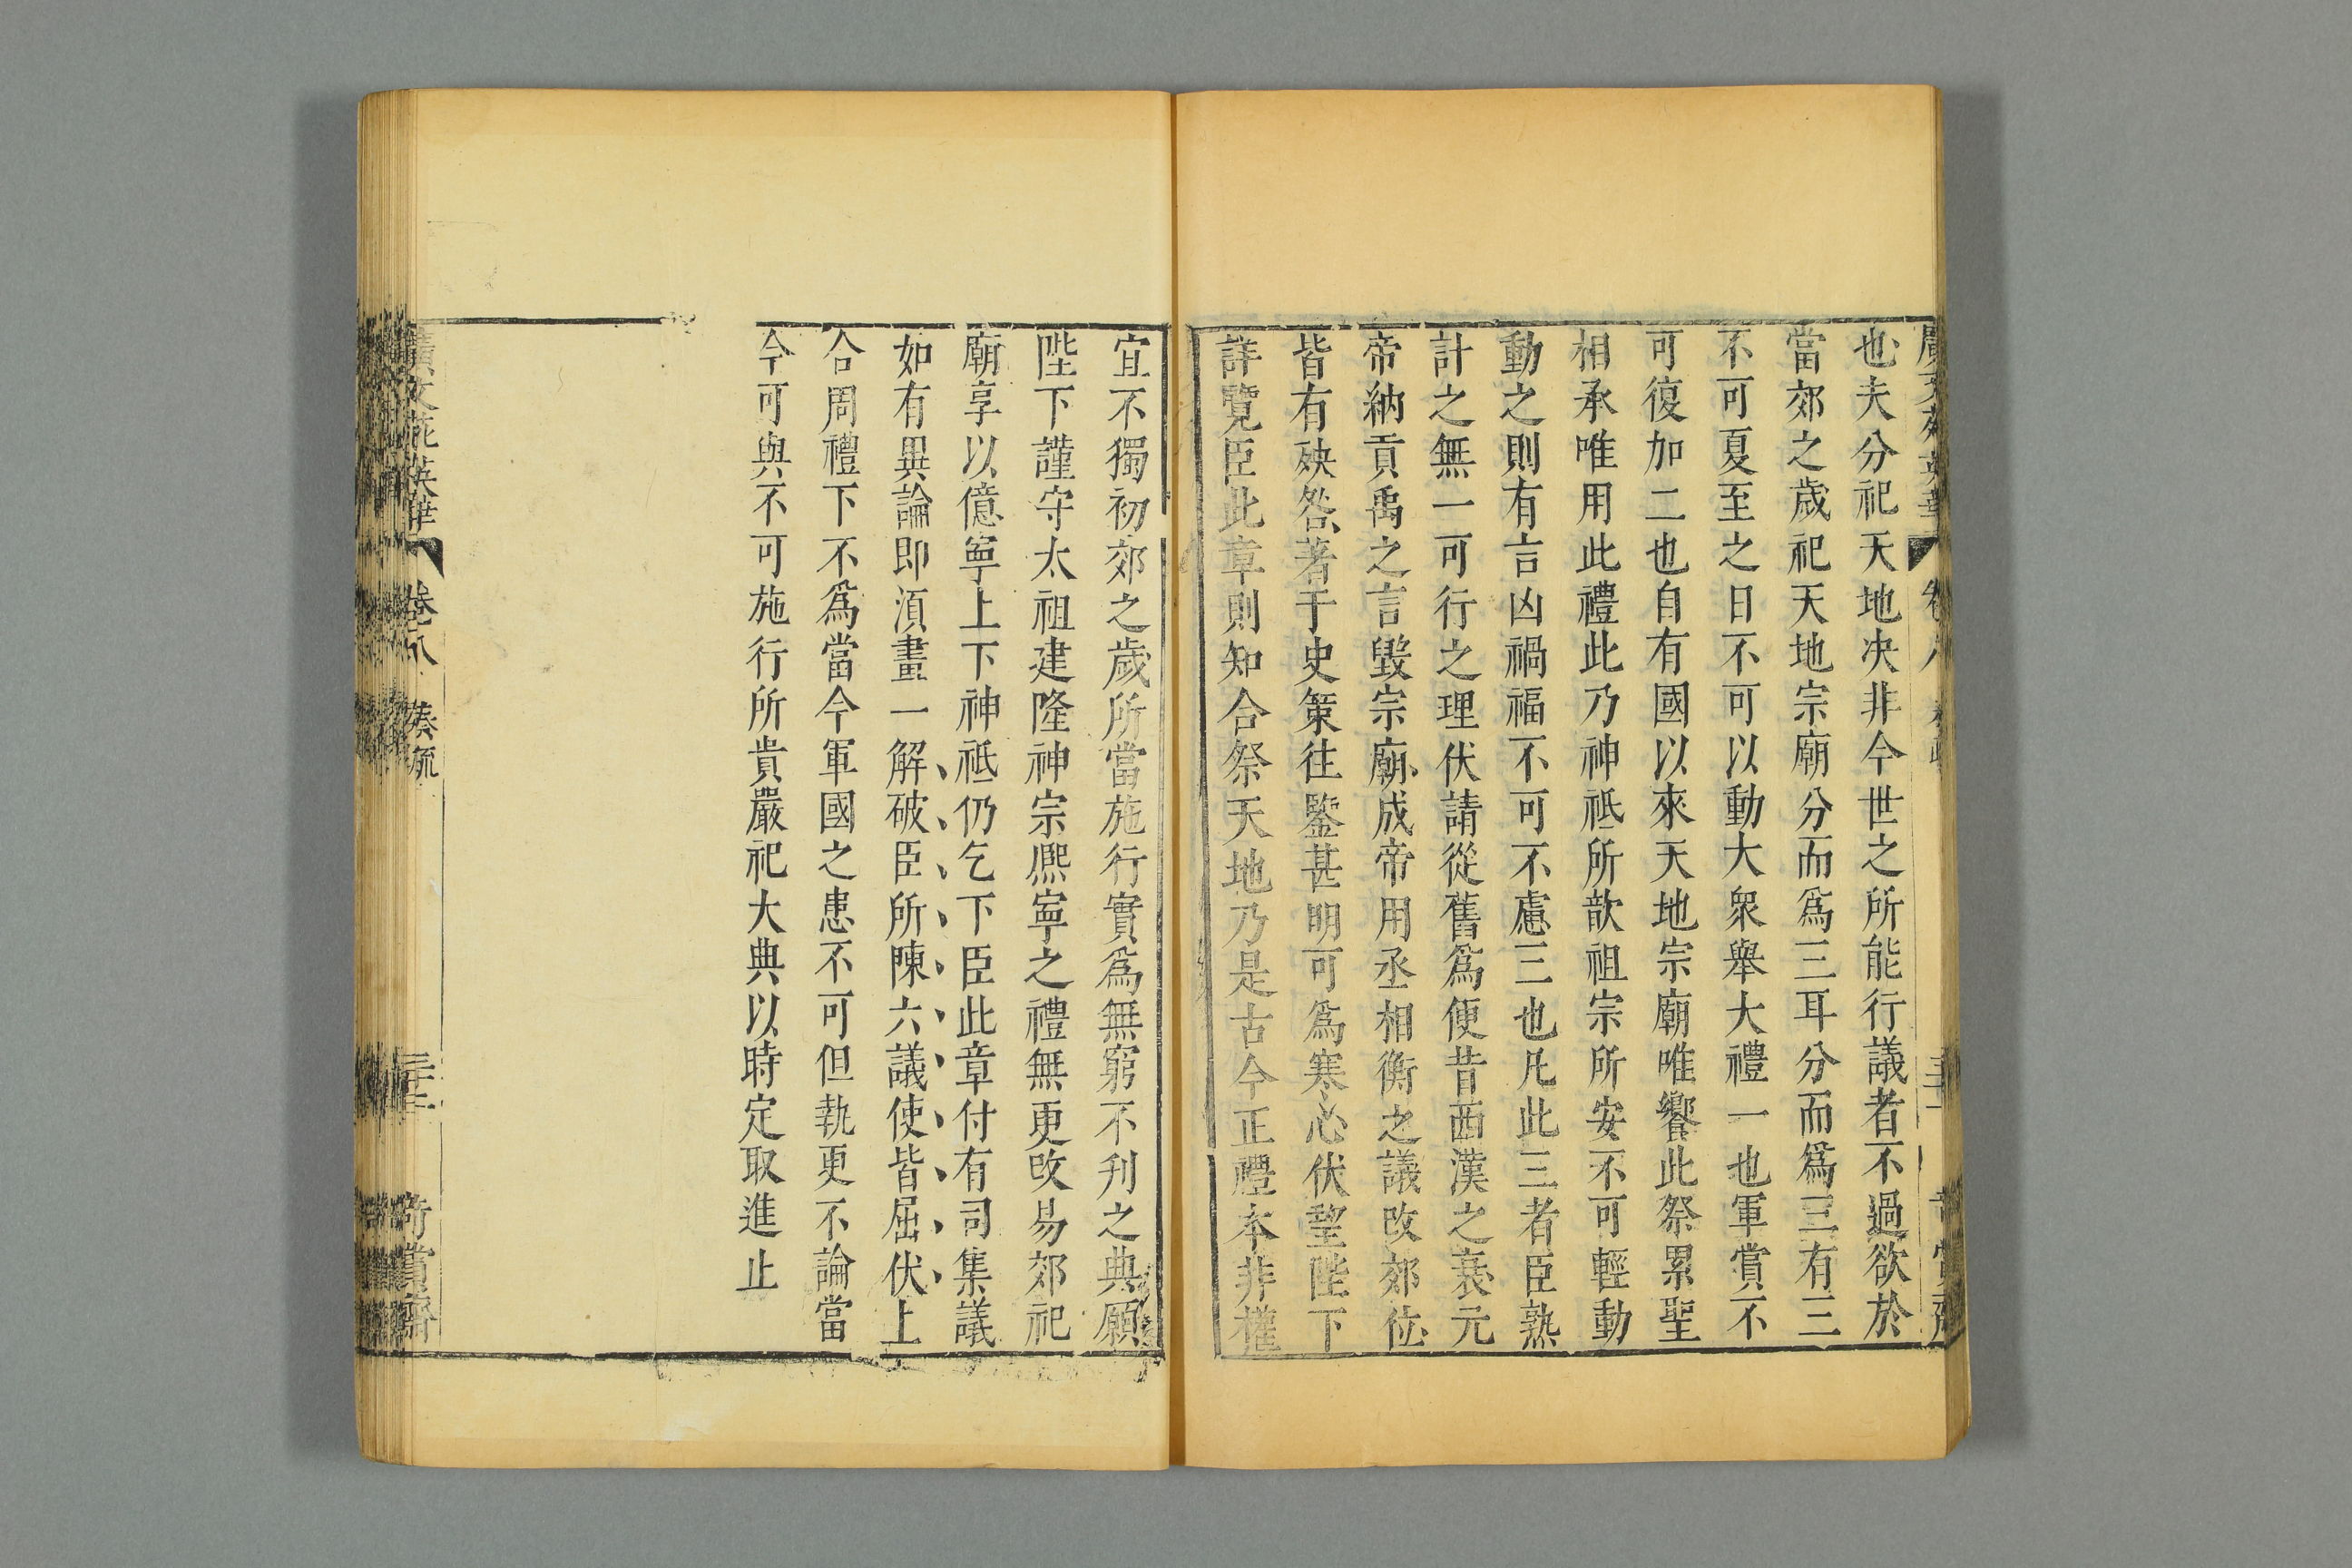 也夫分祀天地决非今世之所能行議者不過欲於
當郊之歲祀天地宗廟分而爲三耳分而爲三有三
不可夏至之日不可以動大衆舉大禮一也軍賞不
可復加二也自有國以來天地宗廟唯饗此祭累聖
相承唯用此禮此乃神祗所歆祖宗所安不可輕動
動之則有言凶禍福不可不慮三也凡此三者臣熟
計之無一可行之理伏請從舊爲便昔西漢之衰元
帝納貢禹之言毀宗廟成帝用丞相衡之議改郊位
皆有殃咎著于史策往鑒甚明可爲寒心伏望陛下
詳覽臣此章則知合祭天地乃是古今正禮本非權
宜不獨初郊之歲所當施行實爲無窮不刋之典願
陛下謹守太祖建隆神宗熈寧之禮無更改易郊祀
廟享以億寧上下神祗仍乞下臣此章付有司集議
如有異論即湏畫一解破臣所陳六議使皆屈伏上
合周禮下不爲當今軍國之患不可但執更不論當
今可與不可施行所貴嚴祀大典以時定取進止
廣文苑英華 卷八 奏疏 三十二 奇賞齋